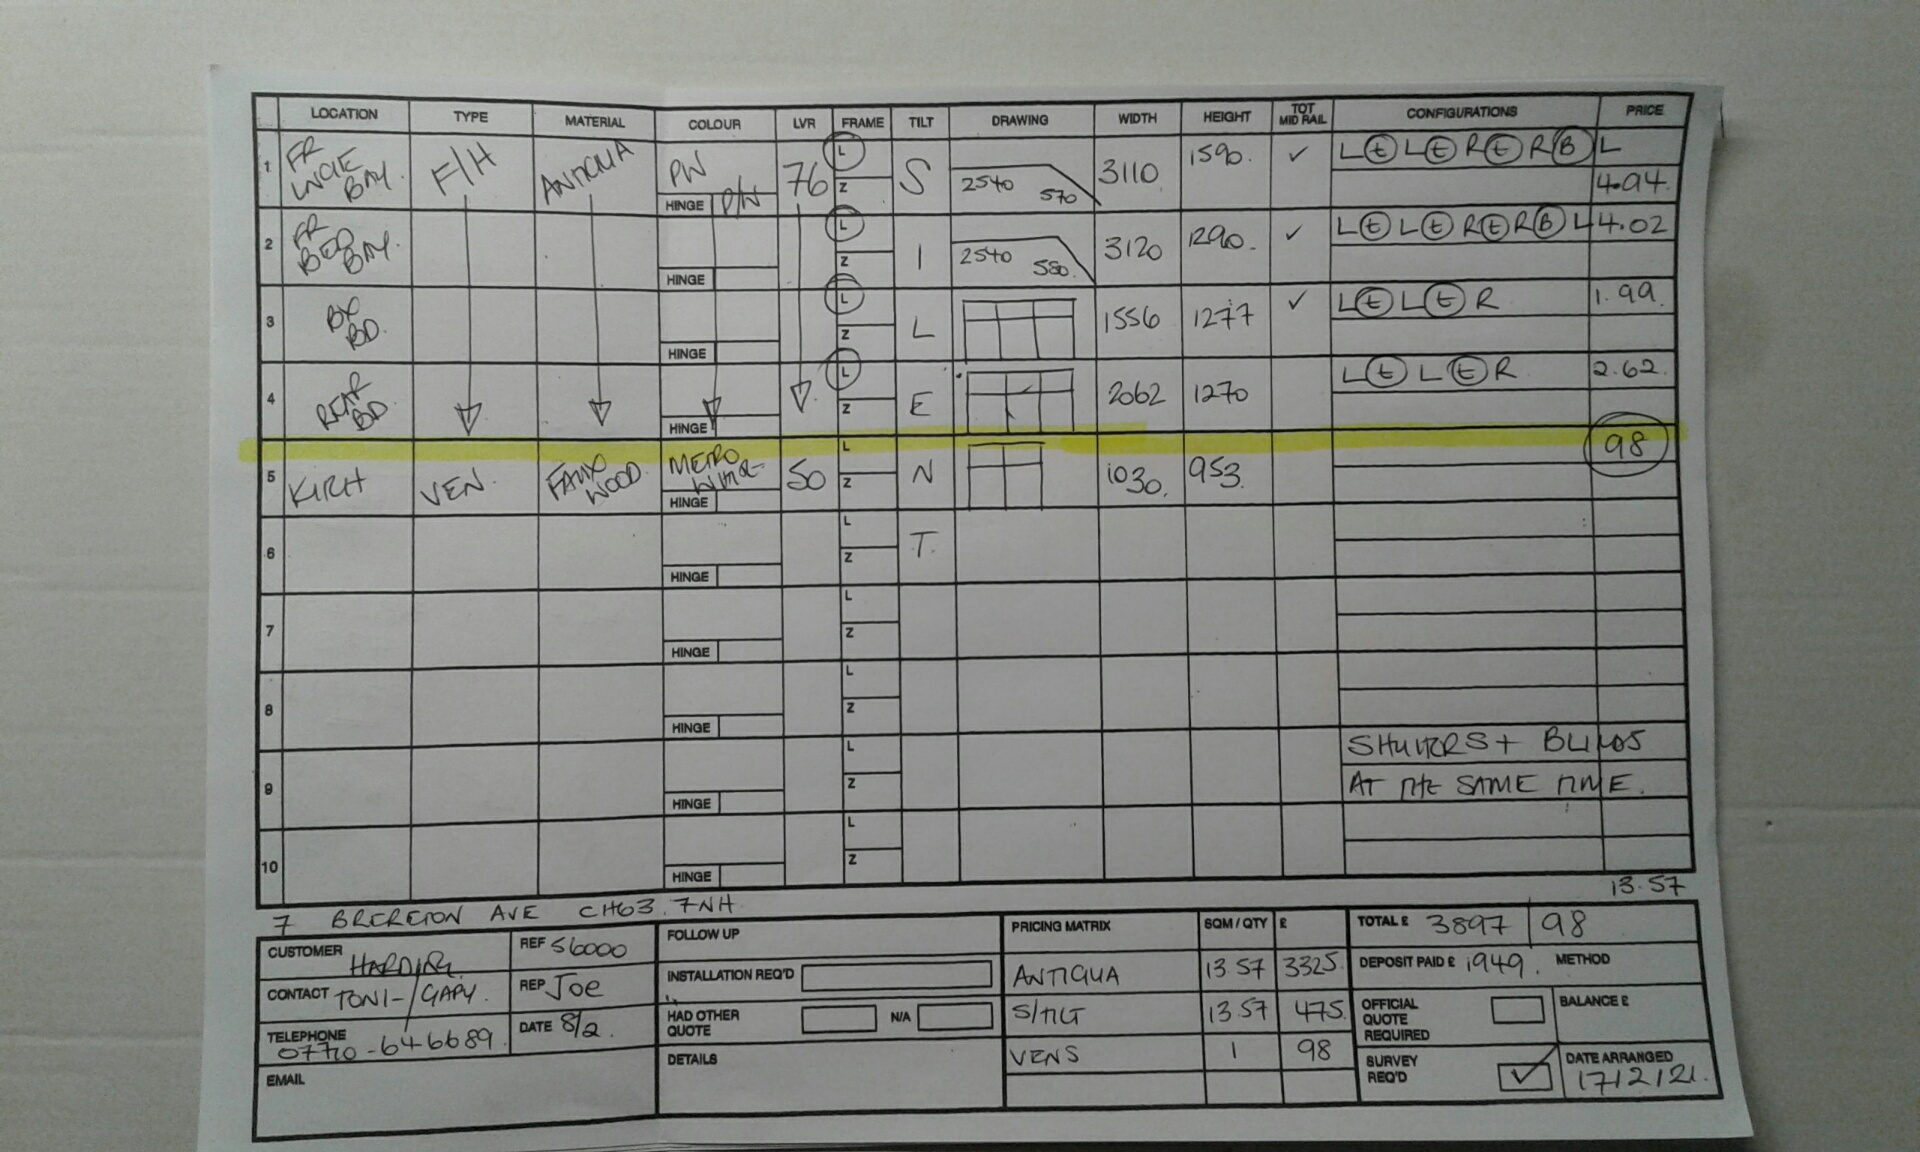 LOCATION TYPE MATERIAL COLOUR LVR FRAME TILT DRAWING WIDTH HEIGHT TOT MID RAIL CONFIGURATIONS PRICE
1 FR BAY. F/H ANTIGUA PW HINGE P/W 76 L Z S 2540 570 3110 1590. ✓ LtLtRtRB L 4.94.
2 FR BED BAY. HINGE L Z I 2540 580. 3120 1290. ✓ LtLtRtRB L 4.02
3 BD. HINGE L Z L 1556 1277 ✓ LtLtR 1.99.
4 REAR BD HINGE L Z E 2062 1270 LtLtR 2.62.
5 VEN. FAUX WOOD. METRO HINGE 50 L Z N 1030. 953. 98
6 HINGE L Z T.
7 HINGE L Z
8 HINGE L Z
SHUTTERS + BLINDS
9 HINGE L Z AT THE SAME TIME.
10 HINGE L Z
13.57
7 BRERETON AVE CH63.7NH.
CUSTOMER REF S6000
CONTACT TONI-/GARY. REP Joe
TELEPHONE 07710-646689. DATE 8/2.
EMAIL
FOLLOW UP
INSTALLATION REQ'D
HAD OTHER QUOTE N/A
DETAILS
PRICING MATRIX SQM / QTY £
ANTIGUA 13.57 3325.
S/TILT 13.57 475.
VENS 1 98
TOTAL £ 3897 / 98
DEPOSIT PAID £ 1949. METHOD
OFFICIAL QUOTE REQUIRED BALANCE £
SURVEY REQ'D ✓ DATE ARRANGED
17/2/21.